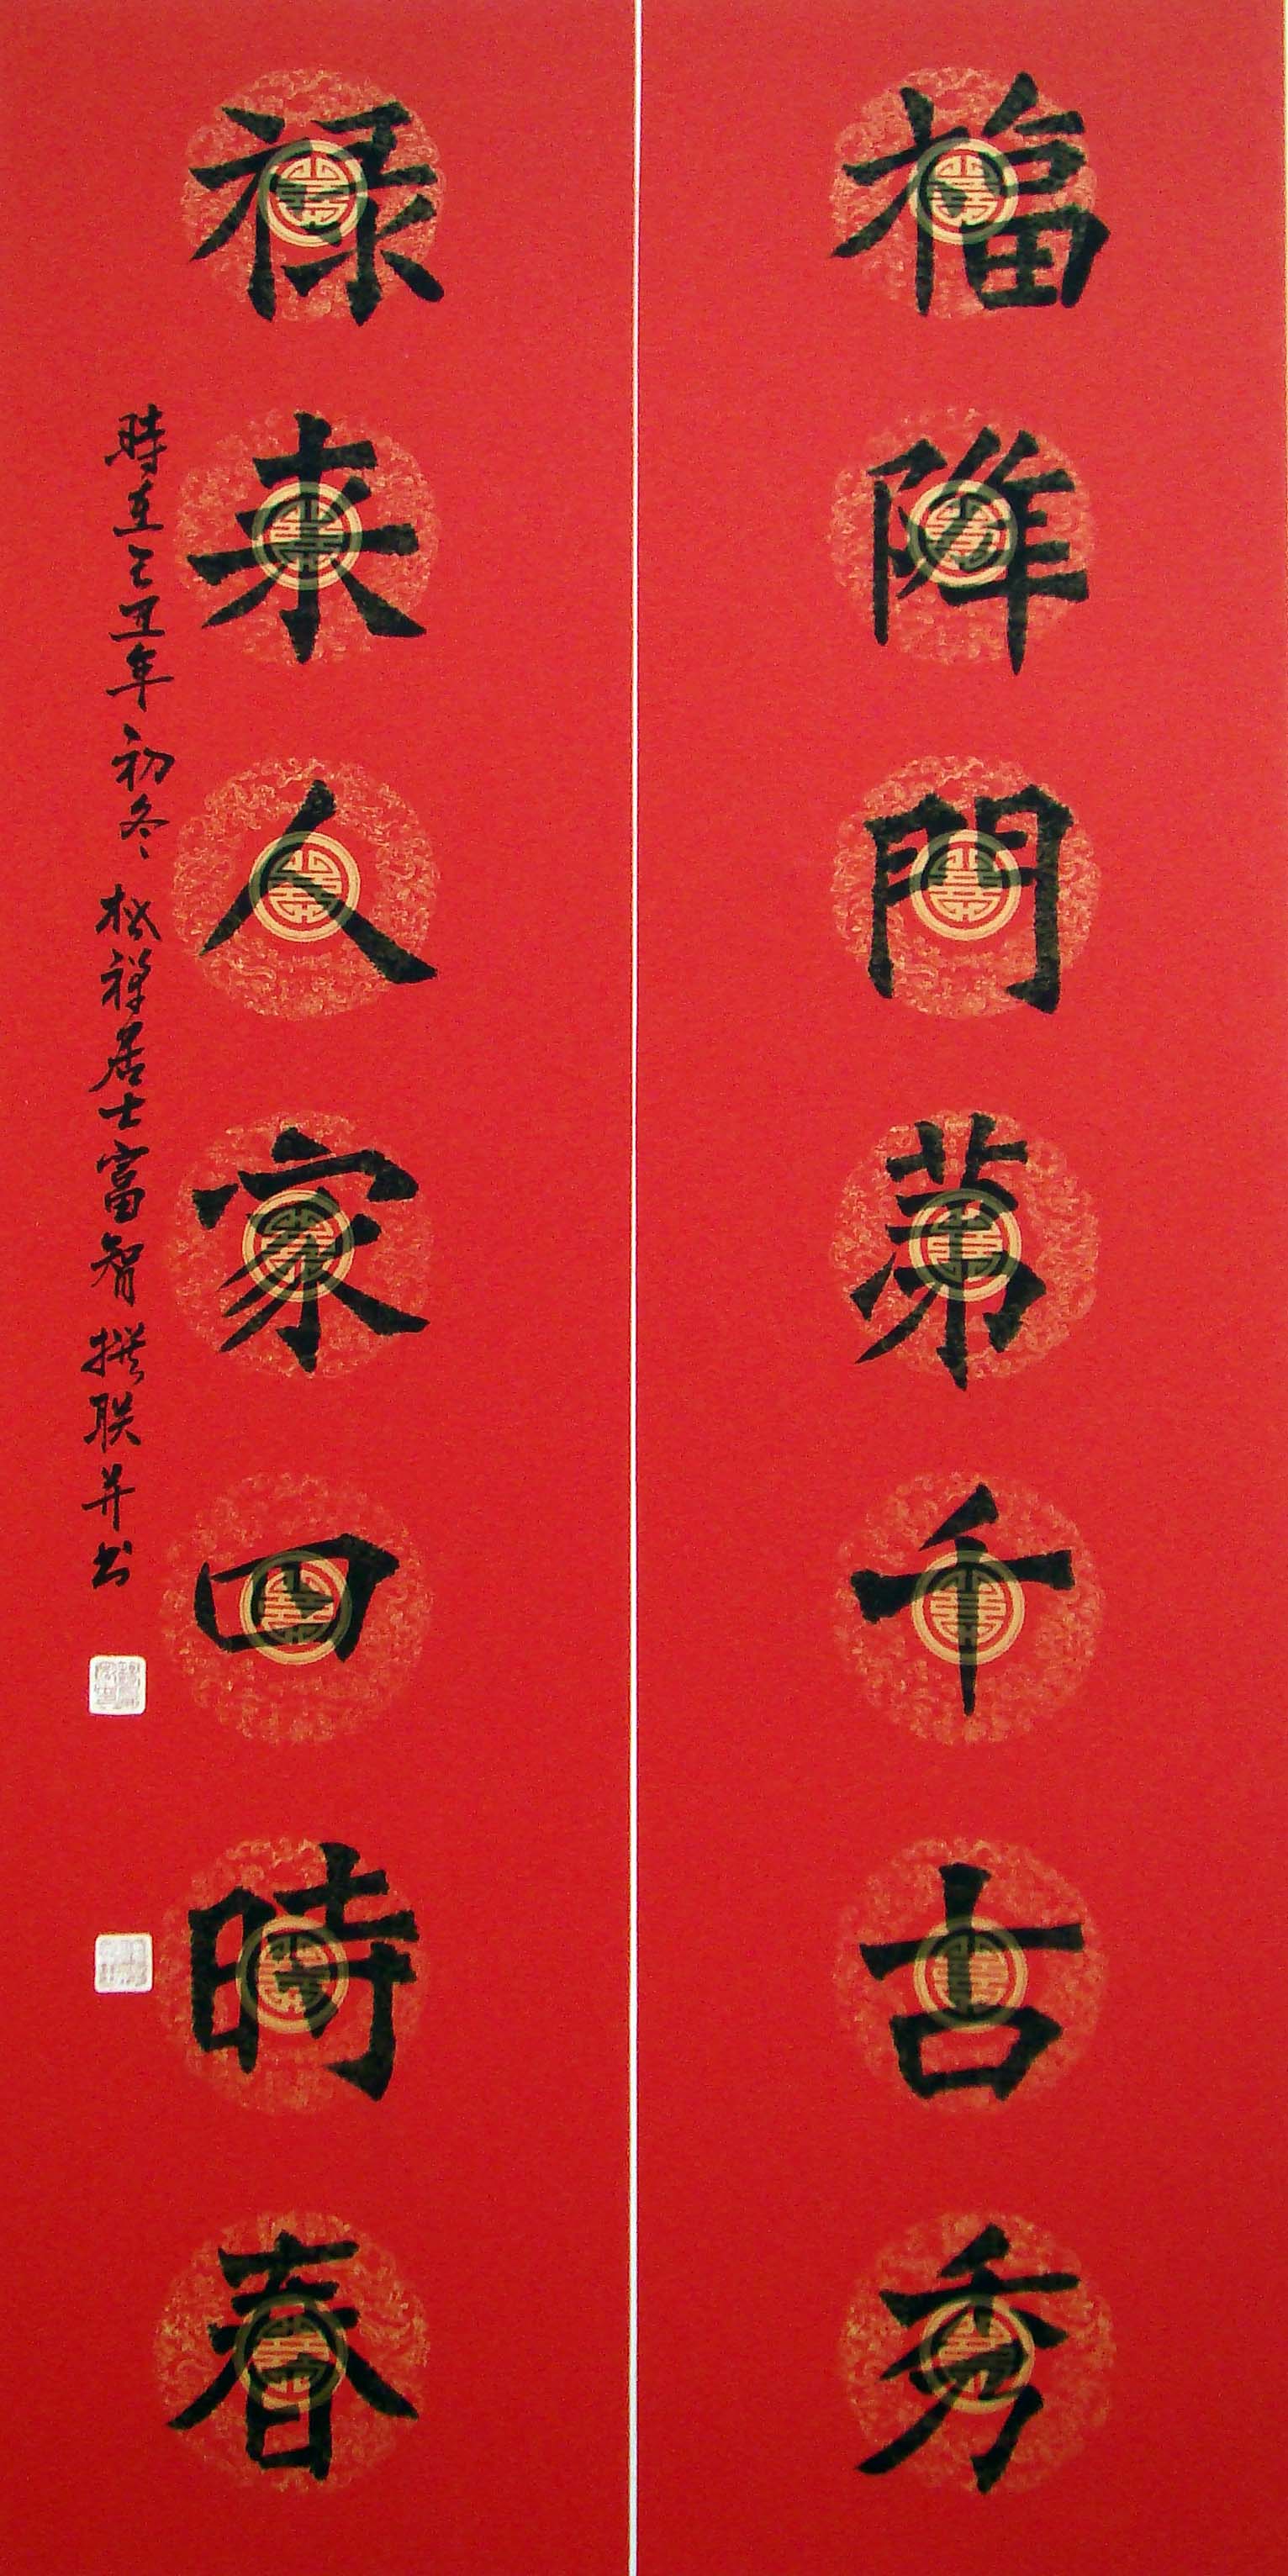 福降門第千古秀
禄来人家四時春
時在己丑年初冬 松禅居士富智撰联并书